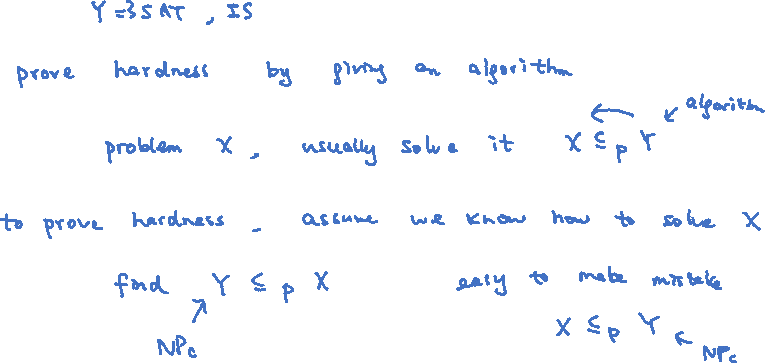 Y = 3SAT, IS
prove hardness by giving an algorithm
problem X, usually solve it X ≤p Y ← algorithm
to prove hardness, assume we know how to solve X
find Y ≤p X easy to make mistake
NPc X ≤p Y ← NPc